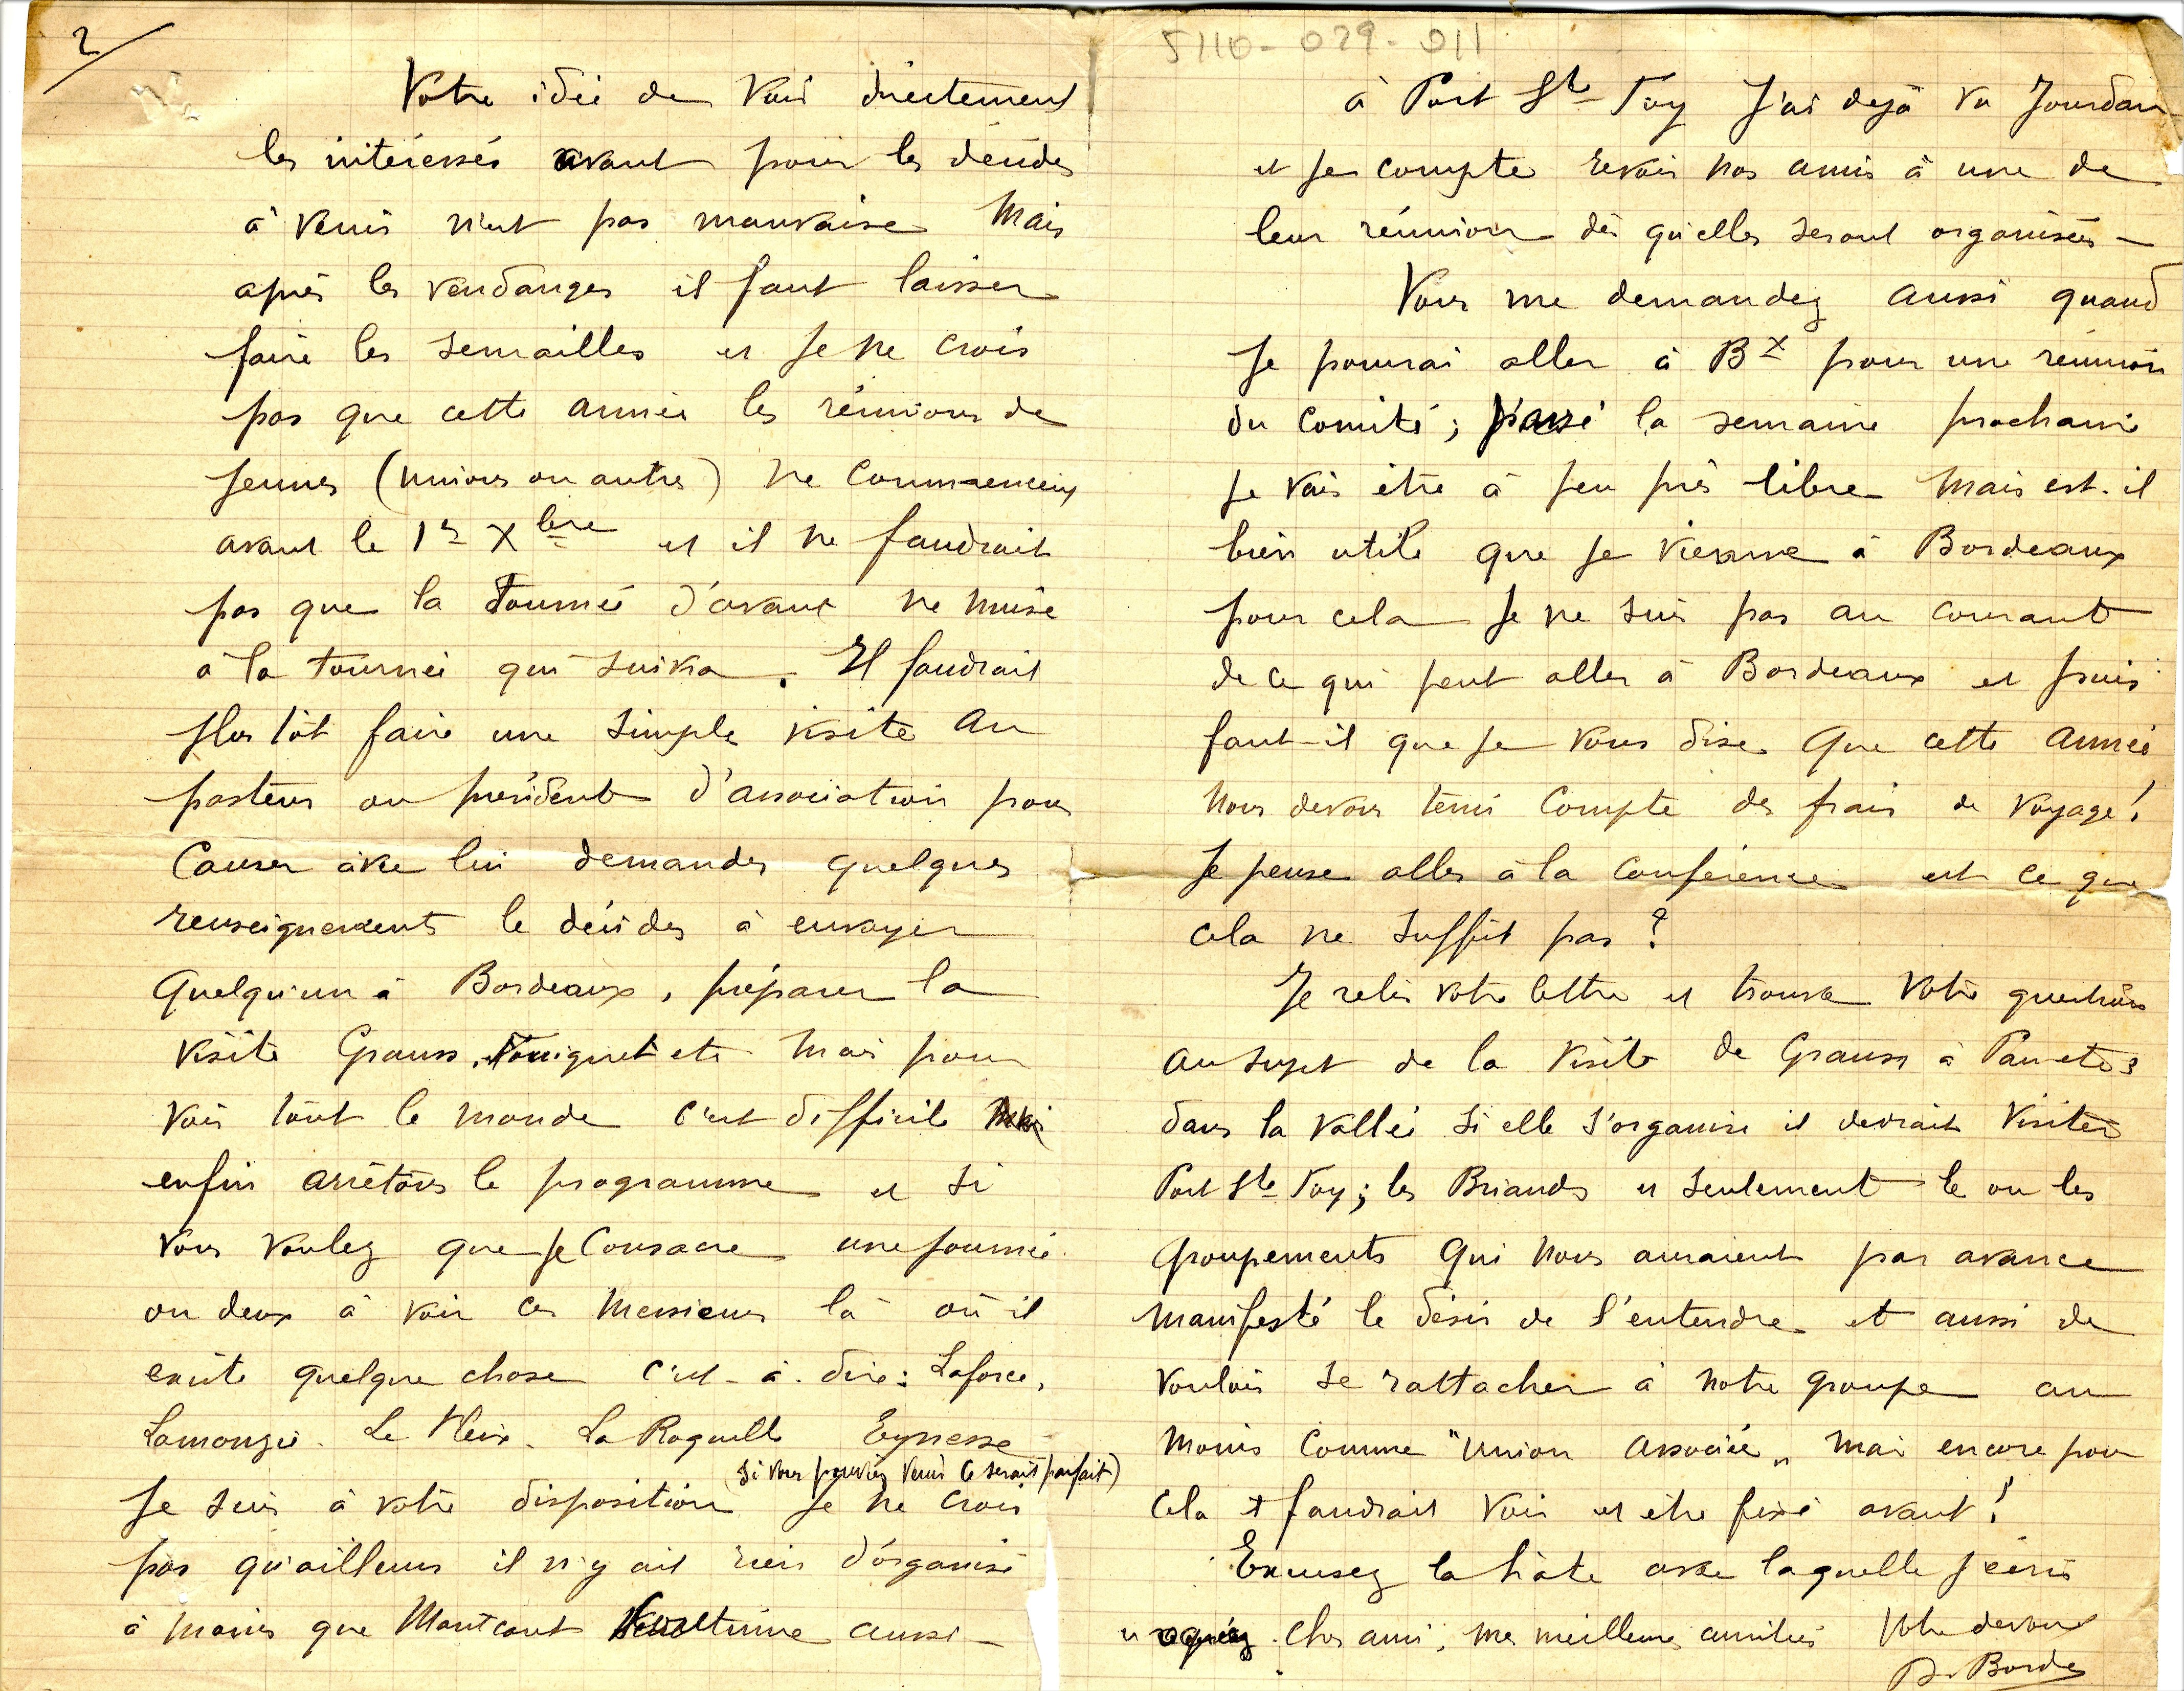 2
Votre idée de voir directement
les intéressés avant pour les décider
à venir n'est pas mauvaise Mais
après les vendanges il faut laisser
faire les semailles et je ne crois
pas que cette année les réunions de
jeunes (unions ou autres) ne commencent
avant le 1er Xbre et il ne faudrait
pas que la tournée d'avant ne nuise
à la tournée qui suivra. Il faudrait
plus tôt faire une simple visite au
pasteur ou président d'association pour
causer avec lui demander quelques
renseignements le décider à envoyer
quelqu'un à Bordeaux, préparer la
visite Grauss, etc Mais pour
voir tout le monde c'est difficile
enfin arrêtons le programme et si
vous voulez que je consacre une journée
ou deux à voir ces Messieurs là où il
existe quelque chose c'est-à-dire: Laforce,
Lamonzie. Le Fleix. La Roquille Eynesse
(si vous pouviez venir ce serait parfait)
Je suis à votre disposition je ne crois
pas qu'ailleurs il n'y ait rien d'organisé
à moins que Montcaret aussi -
5110-029-011
à Port Ste Foy J'ai dejà vu Jourdan
et je compte revoir nos amis à une de
leur réunion dès qu'elles seront organisées -
Vous me demandez aussi quand
je pourrai aller à Bx pour une réunion
du Comité; passé la semaine prochaine
je vais être à peu près libre Mais est-il
bien utile que je vienne à Bordeaux
pour cela je ne suis pas au courant
de ce qui peut aller à Bordeaux et puis
faut-il que je vous dise que cette année
nous devons tenir compte des frais de voyage!
Je pense aller à la Conférence est ce que
cela ne suffit pas?
Je relis votre lettre et trouve votre question
au sujet de la visite de Grauss à
dans la Vallée si elle s'organise il devrait visiter
Port Ste Foy; les Briands et seulement le ou les
groupements qui nous auraient par avance
manifesté le désir de l'entendre et aussi de
vouloir se rattacher à notre groupe au
moins comme "Union Associée" mais encore pour
cela il faudrait voir et être fixé avant!
Excusez la hâte avec laquelle j'écris
et agréez cher ami, mes meilleures amitiés Votre dévoué
D. Bordes